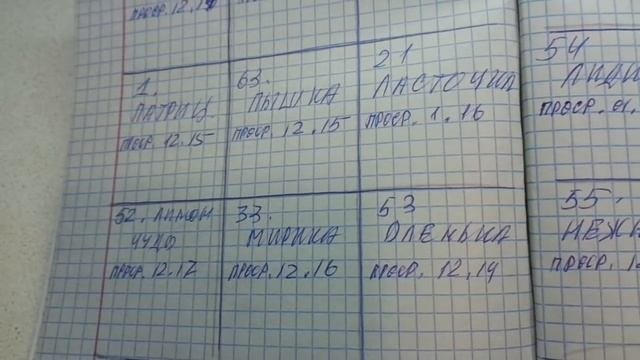 ПРОСР. 12.19
1.
ПАТРИЦ
ПРОСР. 12.15
63.
ПЫШКА
ПРОСР. 12.15
21
ЛАСТОЧКА
ПРОСР. 1.16
54
ЛИДИ
ПРОСР. 01.
52. ЛИМОН
ЧУДО
ПРОСР. 12.17
33.
МИРИКА
ПРОСР. 12.16
53
ОЛЕНЬКА
ПРОСР. 12,14
55.
НЕЖН
ПРОСР. 12